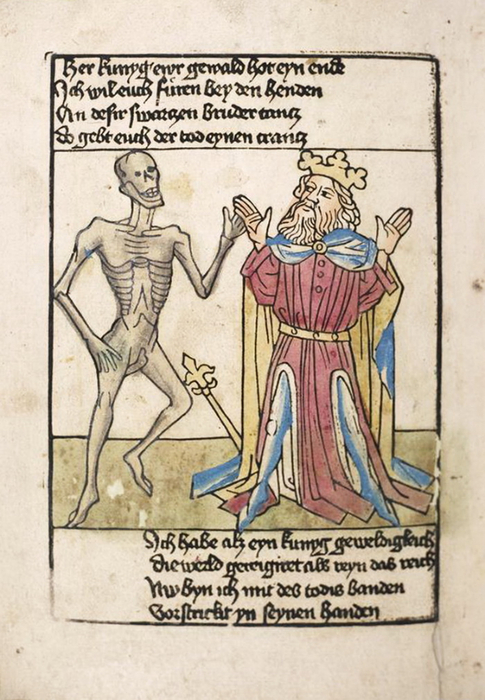 Her kunyg ewr gewald hot eyn ende
Ich wil euch furen bey den henden
An desir swarczen bruder tancz
Do gebt euch der tod eynen crancz
Ich habe alz eyn kunyg geweldigleich
Die werld gereigniret als reyn das reich
Nw byn ich mit des todis banden
Vorstrickt yn seynen handen